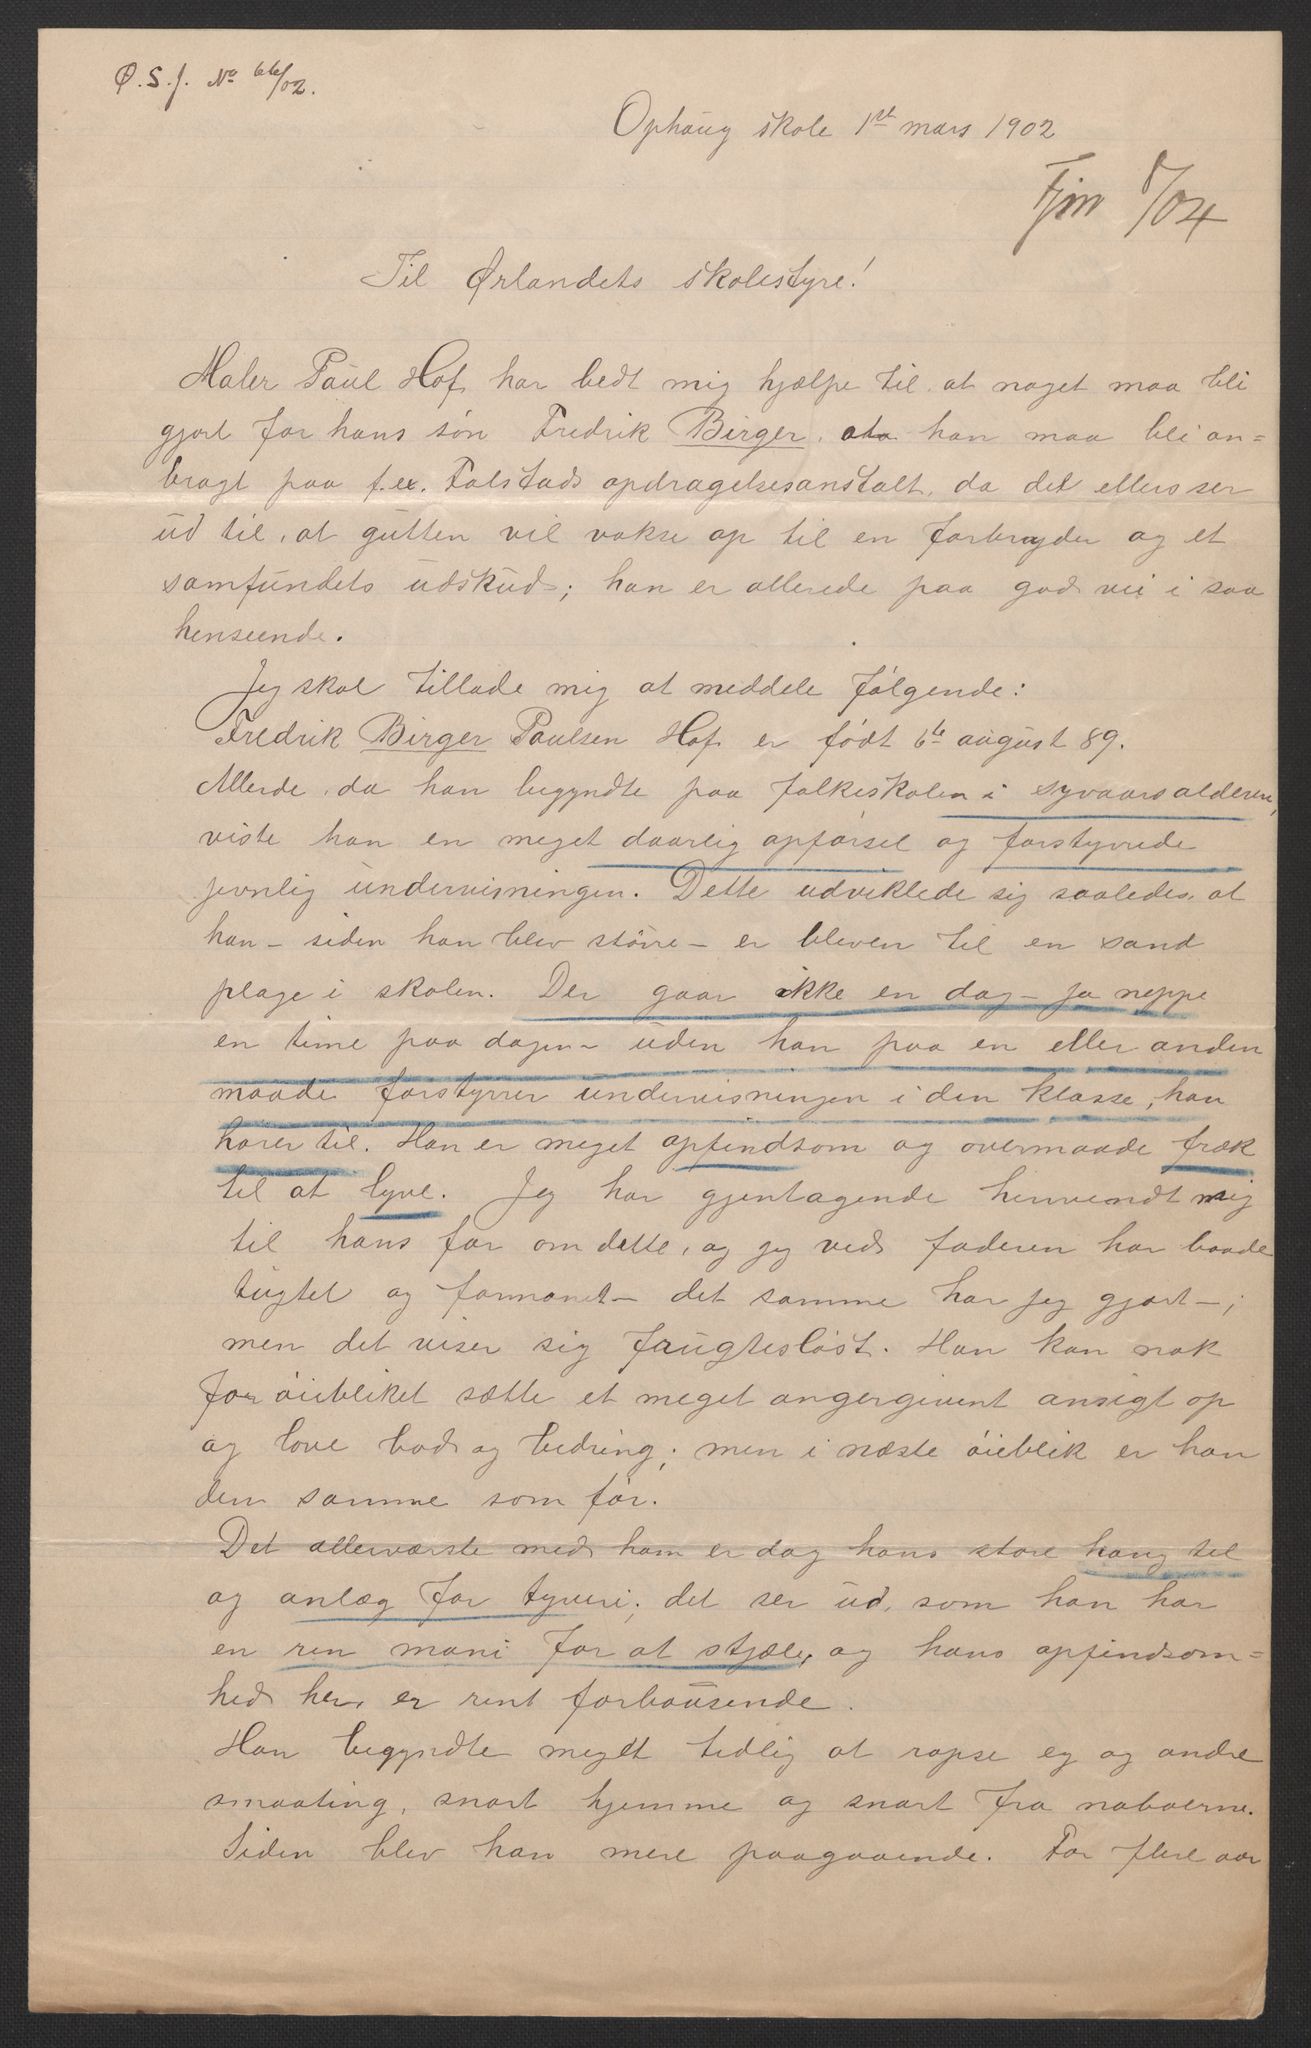 Ø. S. J. No 66/02.
Ophaug skole 1st mars 1902
Til Ørlandets skolestyre!
Maler Paul Hof har bedt mig hjælpe til, at noget maa bli
gjort for hans søn Fredrik Birger, at han maa bli an=
bragt paa f.ex. Falstads opdragelsesanstalt, da det ellers ser
ud til, at gutten vil vokse op til en forbryder og et
samfundets udskud; han er allerede paa god vei i saa
henseende.
Jeg skal tillade mig at meddele følgende:
Fredrik Birger Paulsen Hof er født 6te august 89.
Allerde, da han begyndte paa folkeskolen i syvaarsalderen,
viste han en meget daarlig opførsel og forstyrrede
jevnlig undervisningen. Dette udviklede sig saaledes, at
han – siden han blev større – er bleven til en sand
plage i skolen. Der gaar ikke en dag – ja neppe
en time paa dagen – uden han paa en eller anden
maade forstyrrer undervisningen i den klasse, han
hører til. Han er meget opfindsom og overmaade fræk
til at lyve. Jeg har gjentagende henvendt mig
til hans far om dette, og jeg ved faderen har baade
tugtet og formanet – det samme har jeg gjort –;
men det viser sig frugtesløst. Han kan nok
for øieblikket sætte et meget angergivent ansigt op
og love bod og bedring; men i næste øieblik er han
den samme som før.
Det allerværste med ham er dog hans store hang til
og anlæg for tyveri; det ser ud, som han har
en ren mani for at stjæle, og hans opfindsom=
hed her, er rent forbausende.
Han begyndte meget tidlig at rapse eg og andre
smaating, snart hjemme og snart fra naboerne.
Siden blev han mere paagaaende. For flere aar